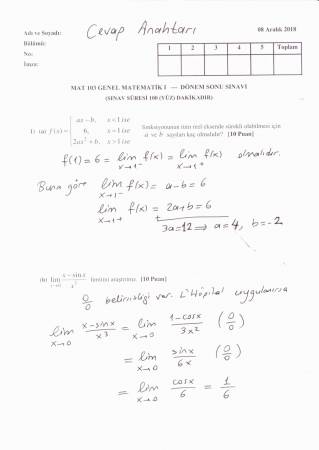 Adı ve Soyadı: Cevap Anahtarı 08 Aralık 2018
Bölümü:
No:
İmza:
1 2 3 4 5 Toplam
MAT 103 GENEL MATEMATİK I — DÖNEM SONU SINAVI
(SINAV SÜRESİ 100 (YÜZ) DAKİKADIR)
1) (a) f(x) = { ax − b, x < 1 ise
6, x = 1 ise
2ax² + b, x > 1 ise
fonksiyonunun tüm reel eksende sürekli olabilmesi için
a ve b sayıları kaç olmalıdır? [10 Puan]
f(1) = 6 = lim x→1⁻ f(x) = lim x→1⁺ f(x) olmalıdır.
Buna göre lim x→1⁻ f(x) = a − b = 6
lim x→1⁺ f(x) = 2a + b = 6
+
3a = 12 ⟹ a = 4, b = −2
(b) lim x→0 (x − sin x)/x³ limitini araştırınız. [10 Puan]
0/0 belirsizliği var. L'Hôpital uygulanırsa
lim x→0 (x − sinx)/x³ = lim x→0 (1 − cosx)/3x² (0/0)
= lim x→0 sinx/6x (0/0)
= lim x→0 cosx/6 = 1/6